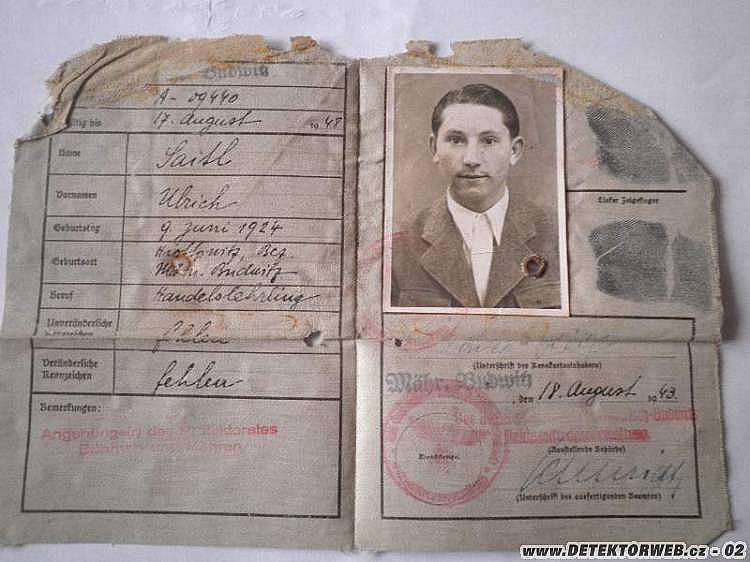 Budwitz
A- 09440
tig bis
17. August 1948
Name
Saitl
Vornamen
Ulrich
Geburtstag
9. Juni 1924
Geburtsort
Bez.
Mähr. Budwitz
Beruf
Handelslehrling
Unveränderliche
fehlen
Veränderliche
Kennzeichen
fehlen
Bemerkungen:
Angehörige(r) des Protektorates
Böhmen und Mähren
Linker Zeigefinger
(Unterschrift des Kennkarteninhabers)
Mähr. Budwitz, den 18. August 1943.
Dienststempel
(Ausstellende Behörde)
(Unterschrift des ausfertigenden Beamten)
www.DETEKTORWEB.cz - 02